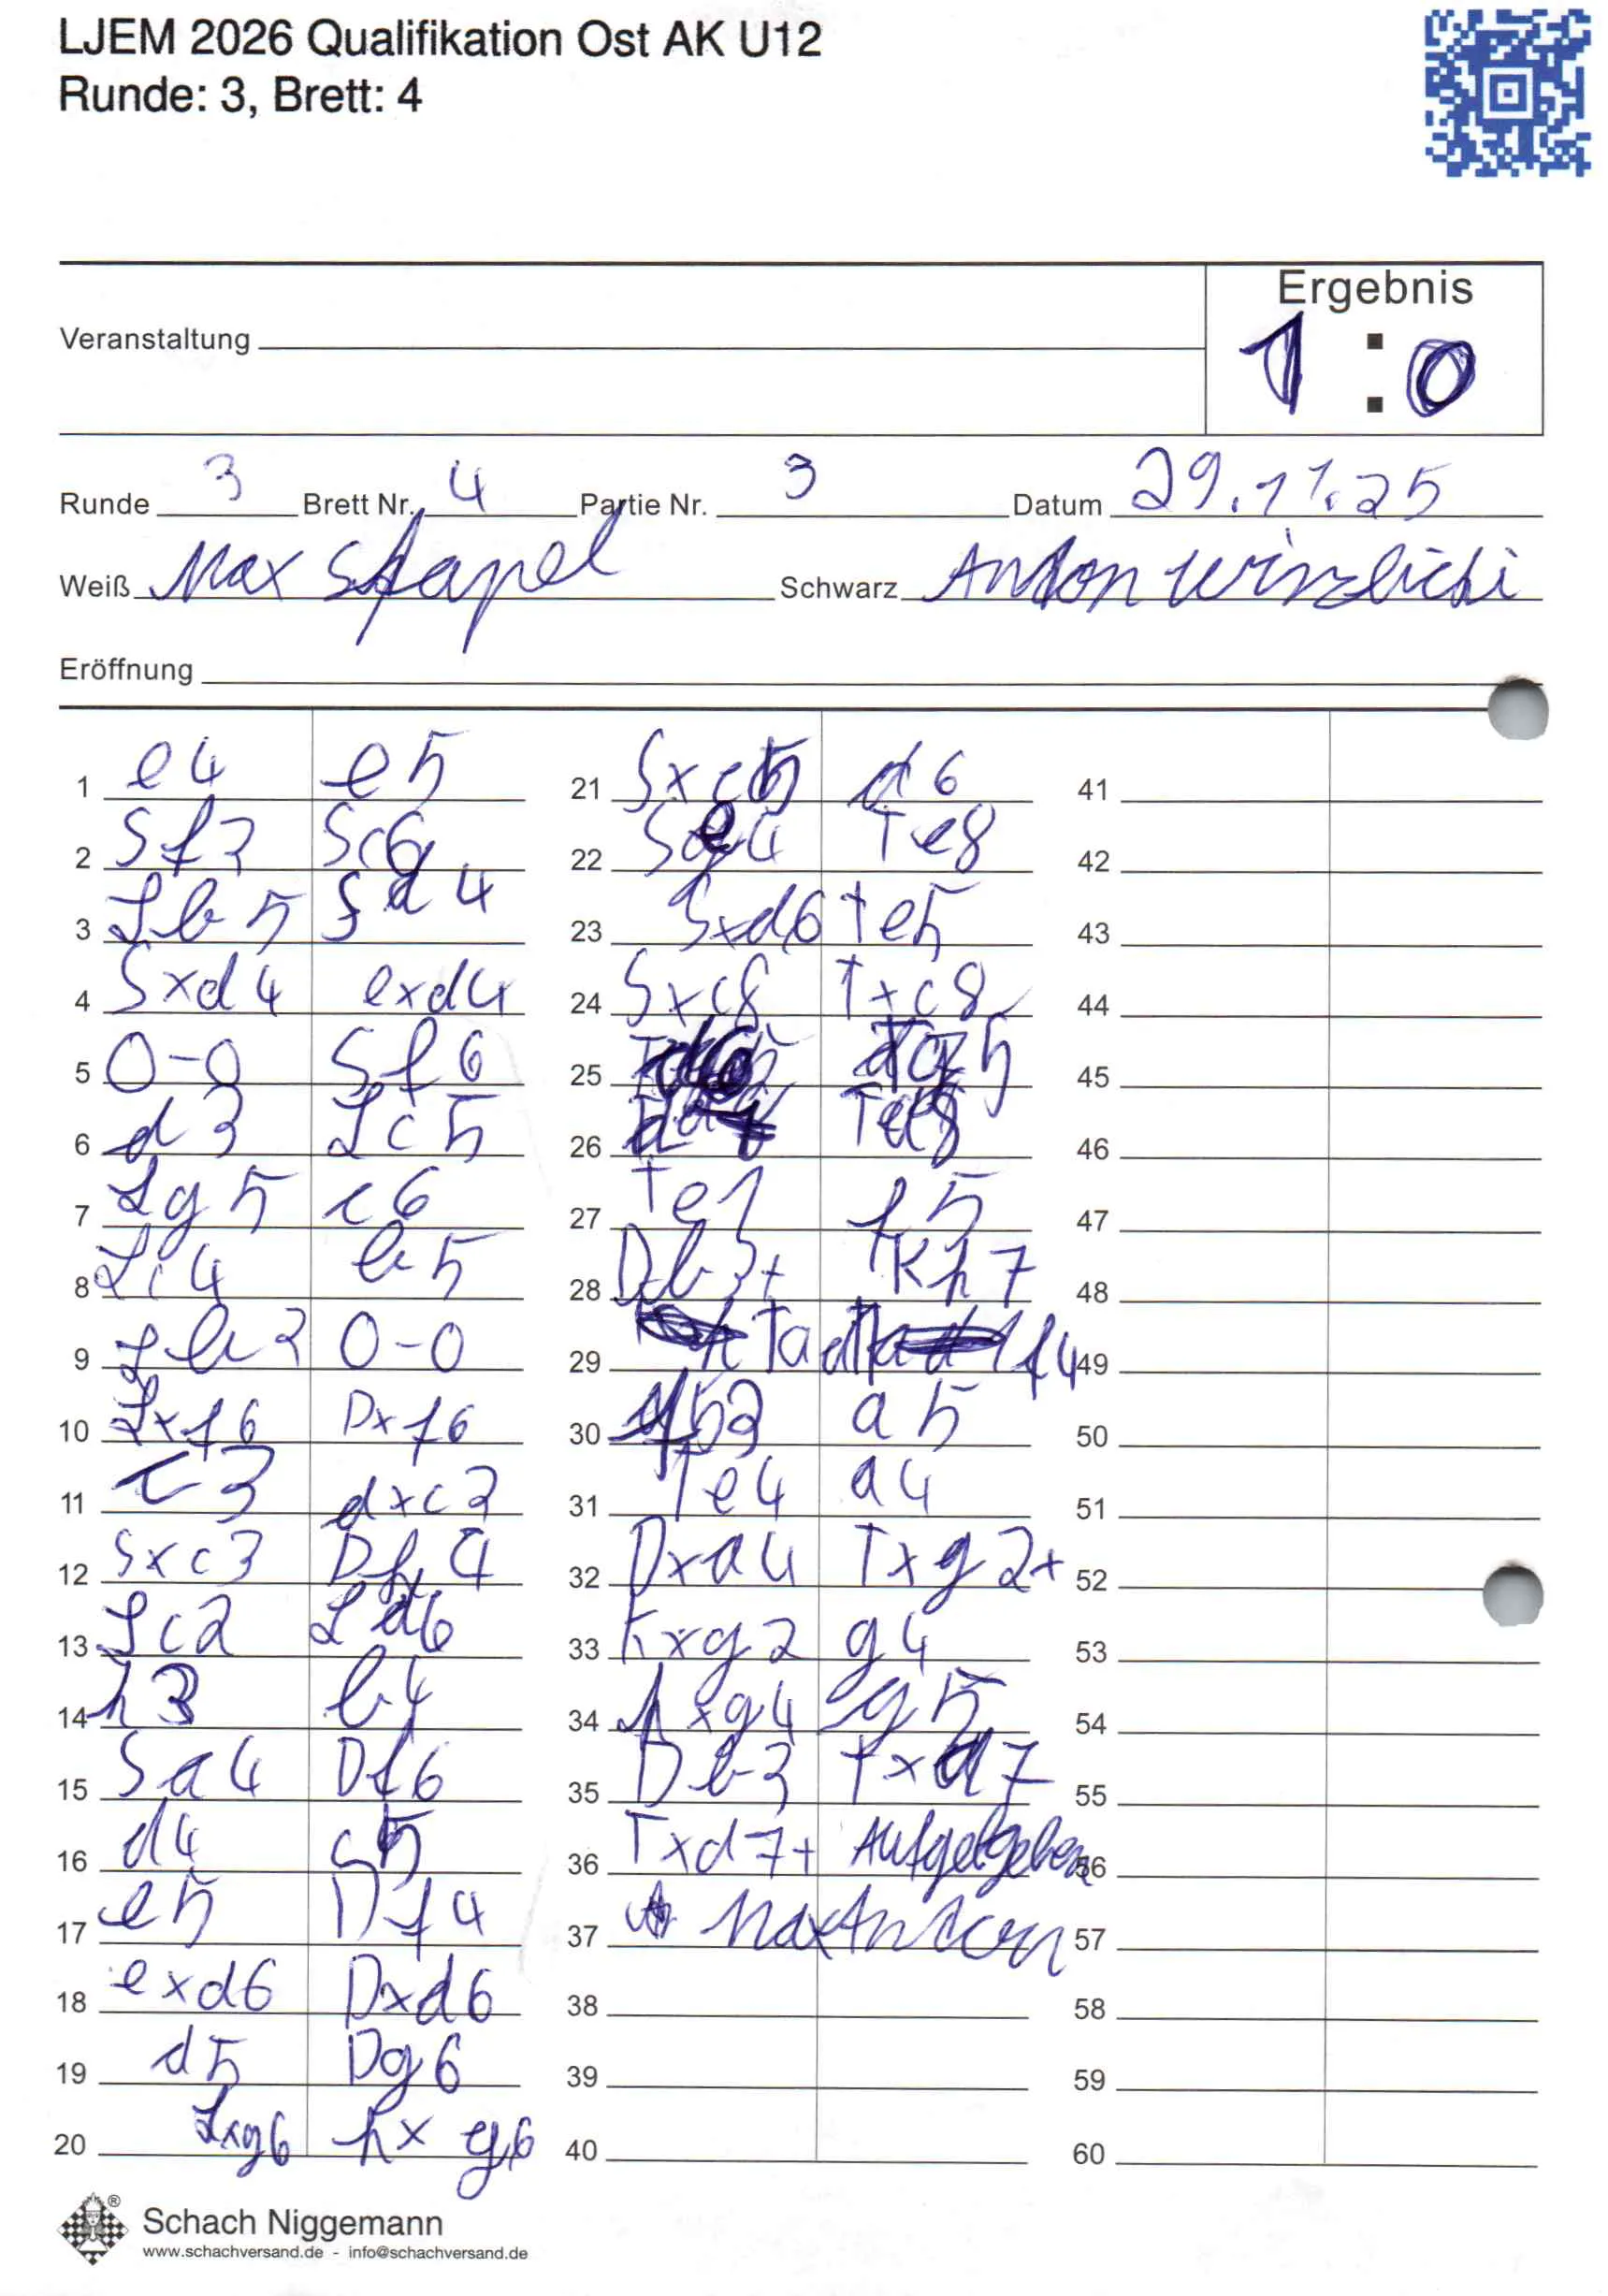 LJEM 2026 Qualifikation Ost AK U12
Runde: 3, Brett: 4
Ergebnis
1 : 0
Veranstaltung
Runde 3 Brett Nr. 4 Partie Nr. 3 Datum 29.11.25
Weiß Max Stapel Schwarz Anton
Eröffnung
1 e4 e5
2 Sf3 Sc6
3 Lb5 Sd4
4 Sxd4 exd4
5 0-0 Sf6
6 d3 Lc5
7 Lg5 c6
8 Lc4 b5
9 Lb3 0-0
10 Lxf6 Dxf6
11 c3 dxc3
12 Sxc3 Df4
13 Lc2 Ld6
14 h3 b4
15 Sa4 Df6
16 d4 c5
17 e5 Df4
18 exd6 Dxd6
19 d5 Dg6
20 Lxg6 hxg6
21 Sxc5 d6
22 Se4 Te8
23 Sxd6 Te5
24 Sxc8 Txc8
25
26
27 Te1 f5
28 Db3+ Kh7
29 Tad1 f4
30 a5
31 Te4 a4
32 Dxa4 Txg2+
33 Kxg2 g4
34 hxg4 g5
35 Db3 Txd7
36 Txd7+ Aufgegeben
37 Max Anton
38
39
40
41
42
43
44
45
46
47
48
49
50
51
52
53
54
55
56
57
58
59
60
Schach Niggemann
www.schachversand.de - info@schachversand.de